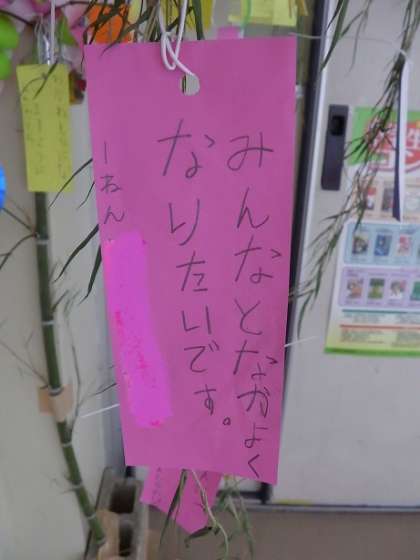 みんなとなかよく
なりたいです。
一ねん